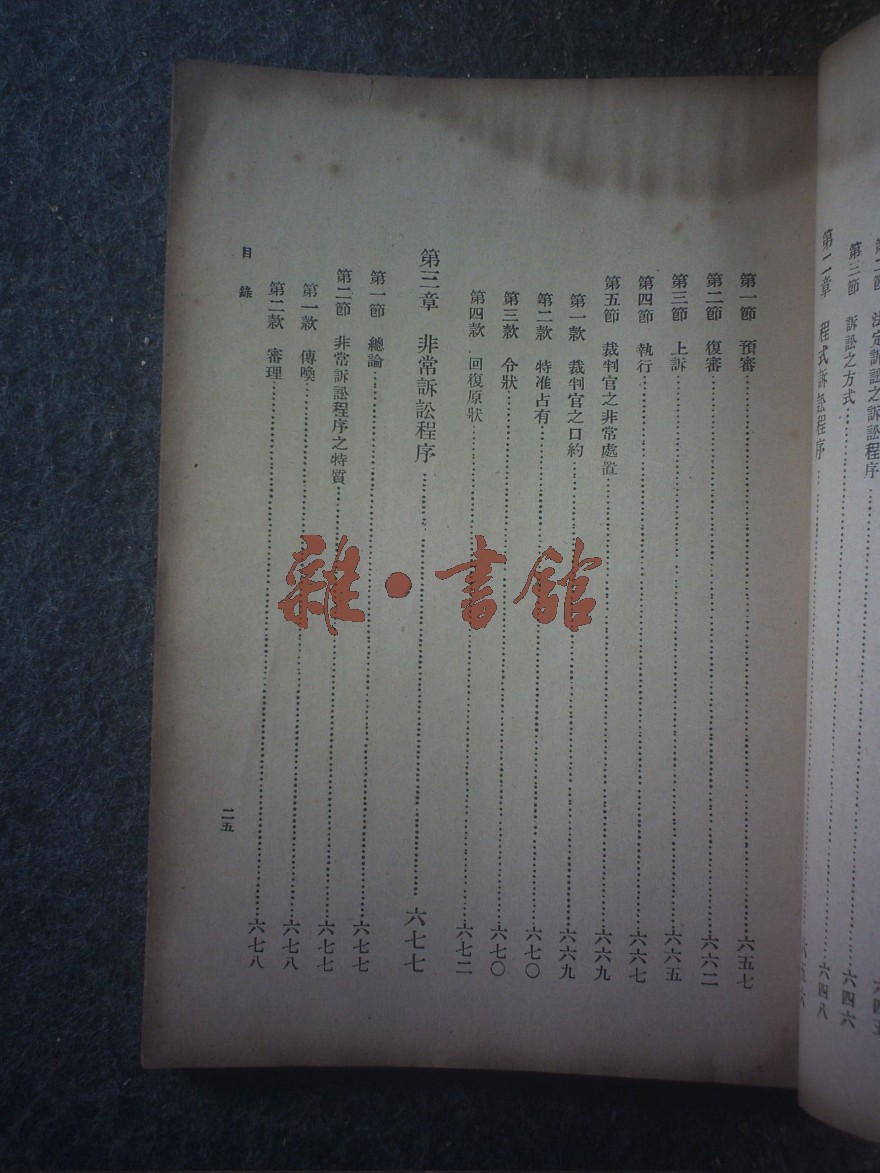 第三節 訴訟之方式……六四六
第二章 程式訴訟程序……六四八
第一節 預審……六五七
第二節 復審……六六二
第三節 上訴……六六五
第四節 執行……六六七
第五節 裁判官之非常處置……六六九
第一款 裁判官之口約……六六九
第二款 特准占有……六七〇
第三款 令狀……六七〇
第四款 回復原狀……六七二
第三章 非常訴訟程序……六七七
第一節 總論……六七七
第二節 非常訴訟程序之特質……六七七
第一款 傳喚……六七八
第二款 審理……六七八
目錄
二五
雜·書館